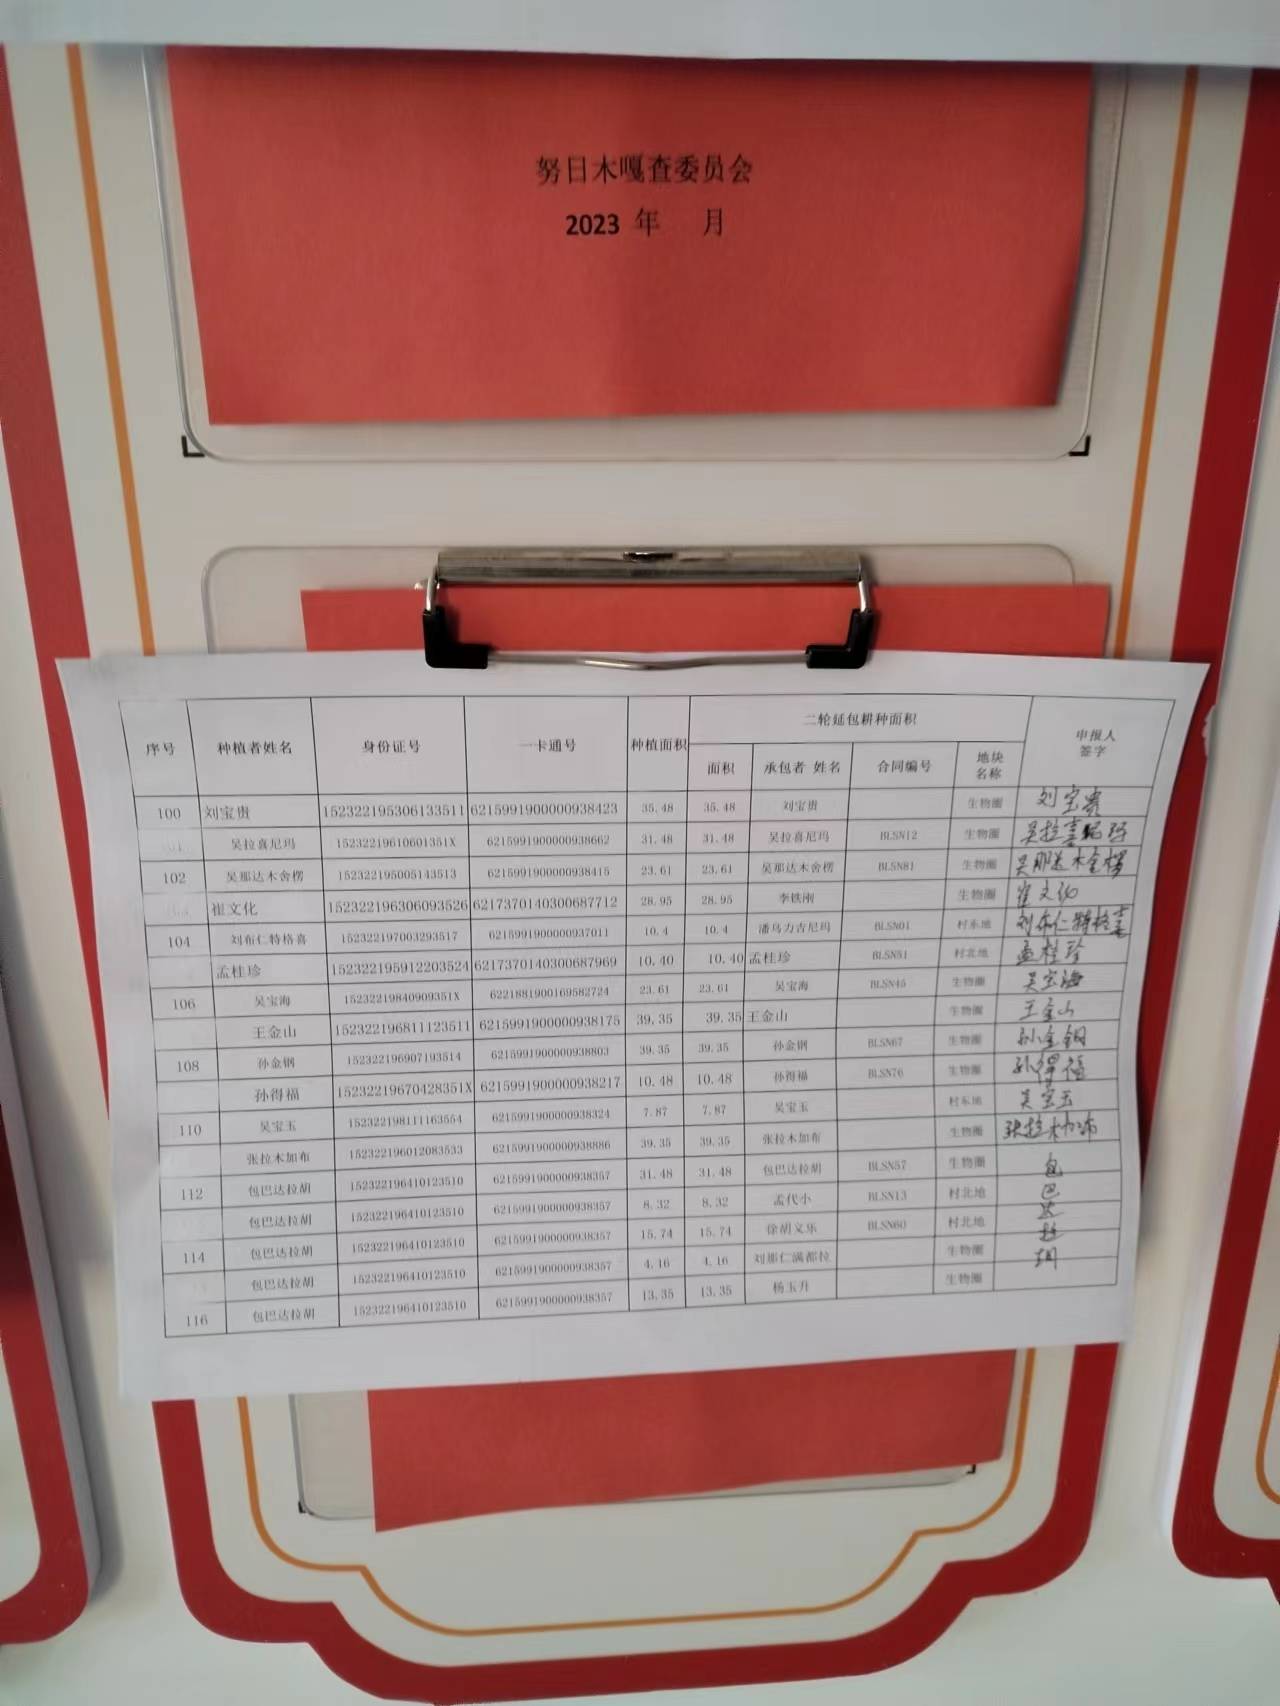 努日木嘎查委员会
2023 年 月
序号 种植者姓名 身份证号 一卡通号 种植面积 二轮延包耕种面积 申报人签字
面积 承包者 姓名 合同编号 地块名称
100 刘宝贵 152322195306133511 6215991900000938423 35.48 35.48 刘宝贵 生物圈 刘宝贵
吴拉喜尼玛 15232219610601351X 6215991900000938662 31.48 31.48 吴拉喜尼玛 BLSN12 生物圈 吴拉喜尼玛
102 吴那达木舍楞 152322195005143513 6215991900000938415 23.61 23.61 吴那达木舍楞 BLSN81 生物圈 吴那达木舍楞
崔文化 152322196306093526 6217370140300687712 28.95 28.95 李铁刚 生物圈 崔文化
104 刘布仁特格喜 152322197003293517 6215991900000937011 10.4 10.4 潘乌力吉尼玛 BLSN01 村东地 刘布仁特格喜
孟桂珍 152322195912203524 6217370140300687969 10.40 10.40 孟桂珍 BLSN51 村北地 孟桂珍
106 吴宝海 15232219840909351X 6221881900169582724 23.61 23.61 吴宝海 BLSN45 生物圈 吴宝海
王金山 152322196811123511 6215991900000938175 39.35 39.35 王金山 生物圈 王金山
108 孙金钢 152322196907193514 6215991900000938803 39.35 39.35 孙金钢 BLSN67 生物圈 孙金钢
孙得福 15232219670428351X 6215991900000938217 10.48 10.48 孙得福 BLSN76 生物圈 孙得福
110 吴宝玉 152322198111163554 6215991900000938324 7.87 7.87 吴宝玉 村东地 吴宝玉
张拉木加布 152322196012083533 6215991900000938886 39.35 39.35 张拉木加布 生物圈 张拉木加布
112 包巴达拉胡 152322196410123510 6215991900000938357 31.48 31.48 包巴达拉胡 BLSN57 生物圈 包
包巴达拉胡 152322196410123510 6215991900000938357 8.32 8.32 孟代小 BLSN13 村北地 巴
114 包巴达拉胡 152322196410123510 6215991900000938357 15.74 15.74 徐胡义乐 BLSN60 村北地 达
包巴达拉胡 152322196410123510 6215991900000938357 4.16 4.16 刘那仁满都拉 生物圈 拉
116 包巴达拉胡 152322196410123510 6215991900000938357 13.35 13.35 杨玉升 生物圈 胡